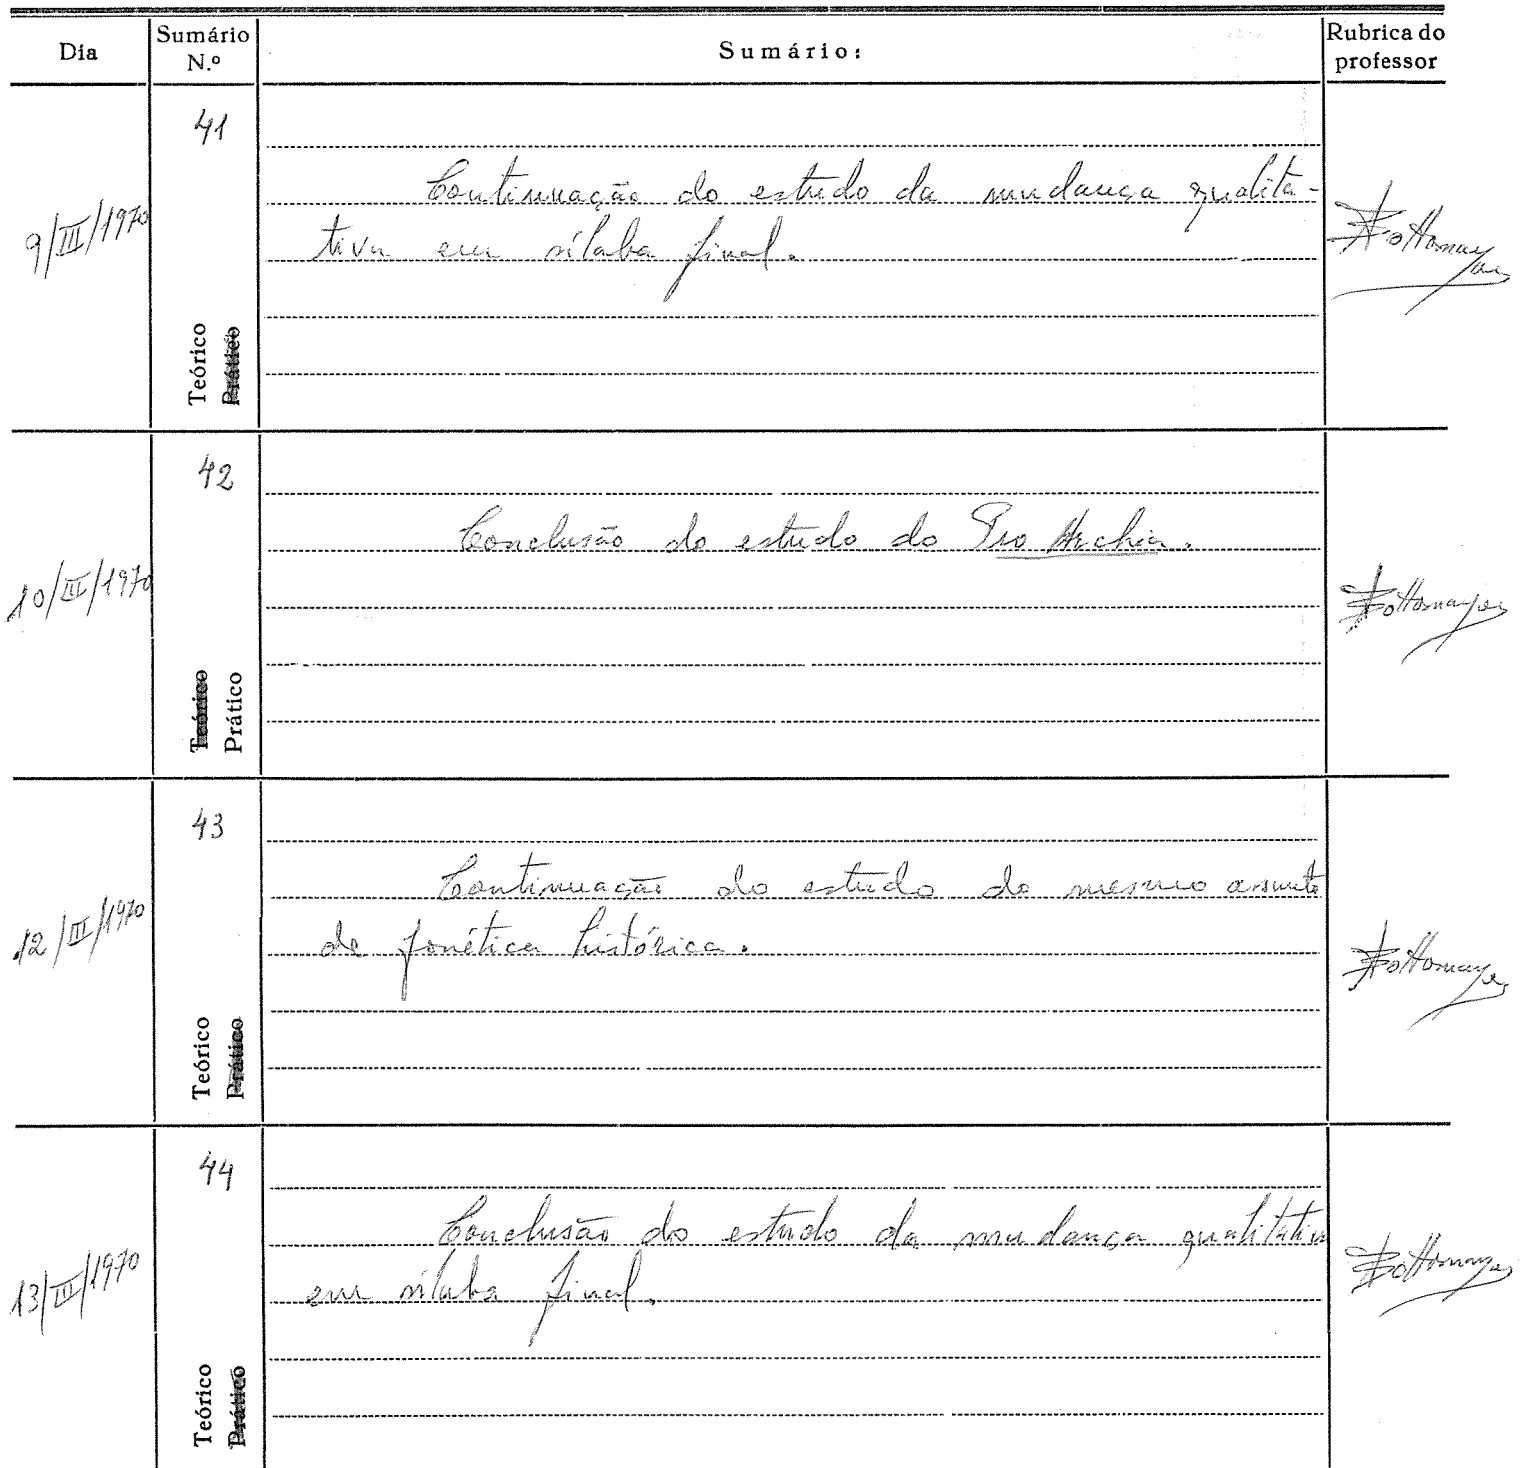 Dia
Sumário N.º
Sumário:
Rubrica do professor
9/III/1970
41
Teórico
Prático
Continuação do estudo da mudança qualita-
tiva em sílaba final.
10/III/1970
42
Teórico
Prático
Conclusão do estudo do Pro Archia.
12/III/1970
43
Teórico
Prático
Continuação do estudo do mesmo assunto
de fonética histórica.
13/III/1970
44
Teórico
Prático
Conclusão do estudo da mudança qualitativa
em sílaba final.